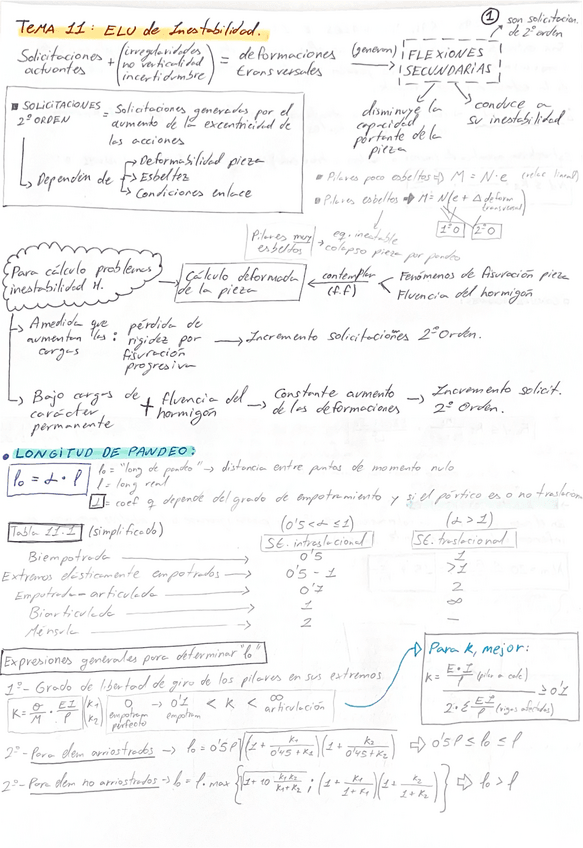 ① son solicitacion.
de 2º orden
TEMA 11: ELU de Inestabilidad.
Solicitaciones actuantes + (irregularidades no verticalidad incertidumbre) = deformaciones transversales (generan) → FLEXIONES SECUNDARIAS
disminuye la capacidad portante de la pieza
conduce a su inestabilidad
▪ SOLICITACIONES 2º ORDEN = Solicitaciones generadas por el
aumento de la excentricidad de
las acciones
↳ Dependen de
→ Deformabilidad pieza
→ Esbeltez
→ Condiciones enlace
▪ Pilares poco esbeltos ⇒ M = N·e (relac lineal)
▪ Pilares esbeltos ⇒ M = N(e + Δ deform transversal)
1ºO 2ºO
Pilares muy esbeltos → eq. inestable
colapso pieza por pandeo
Para cálculo problemas
inestabilidad H.
→ Cálculo deformada
de la pieza
contemplar
(f.f)
Fenómenos de fisuración pieza
Fluencia del hormigón
↳ A medida que
aumentan las :
cargas
pérdida de
rigidez por
fisuración
progresiva
→ Incremento solicitaciones 2º Orden.
↳ Bajo cargas de
carácter
permanente
+ fluencia del
hormigón
→ Constante aumento
de las deformaciones
→ Incremento solicit.
2º Orden.
• LONGITUD DE PANDEO:
l₀ = α · l
l₀ = "long de pandeo" → distancia entre puntos de momento nulo
l = long real
α = coef q depende del grado de empotramiento y si el pórtico es o no traslacion
Tabla 11.1 (simplificado)
(0'5 < α ≤ 1) (α > 1)
SE. intraslacional SE. traslacional
Biempotrada → 0'5 1
Extremos elásticamente empotrados → 0'5 - 1 >1
Empotrada-articulada → 0'7 2
Biarticulada → 1 ∞
Ménsula → 2 —
Expresiones generales para determinar "l₀"
1º- Grado de libertad de giro de los pilares en sus extremos
K = θ/M · EI/l (K₁ K₂)
0 empotram perfecto → 0'1 empotram < K < ∞ articulación
Para K, mejor:
K = (E·I/l (pilar a calc)) / (2·Σ E·I/l (vigas afectadas)) ≥ 0'1
2º- Para elem arriostrados → l₀ = 0'5 l √(1 + K₁/(0'45+K₁))(1 + K₂/(0'45+K₂)) ⇒ 0'5l ≤ l₀ ≤ l
2º- Para elem no arriostrados → l₀ = l · max {√(1 + 10 K₁K₂/(K₁+K₂)) ; (1 + K₁/(1+K₁))(1 + K₂/(1+K₂))} ⇒ l₀ > l